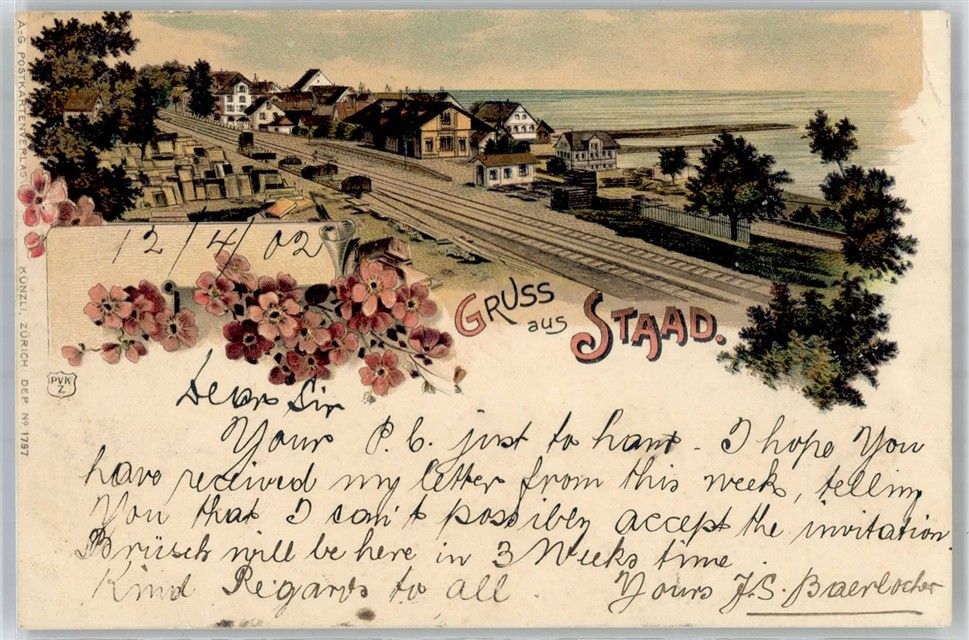 A.-G. POSTKARTENVERLAG KÜNZLI, ZÜRICH DEP. No 1797
12/4/02
GRUSS
aus STAAD.
PVK
Z
Dear Sir
Yours P. C. just to hand - I hope You
have received my letter from this week, telling
You that I can't possibly accept the invitation.
Brüsch will be here in 3 Weeks time.
Kind Regards to all. Yours J.S. Baerlocher